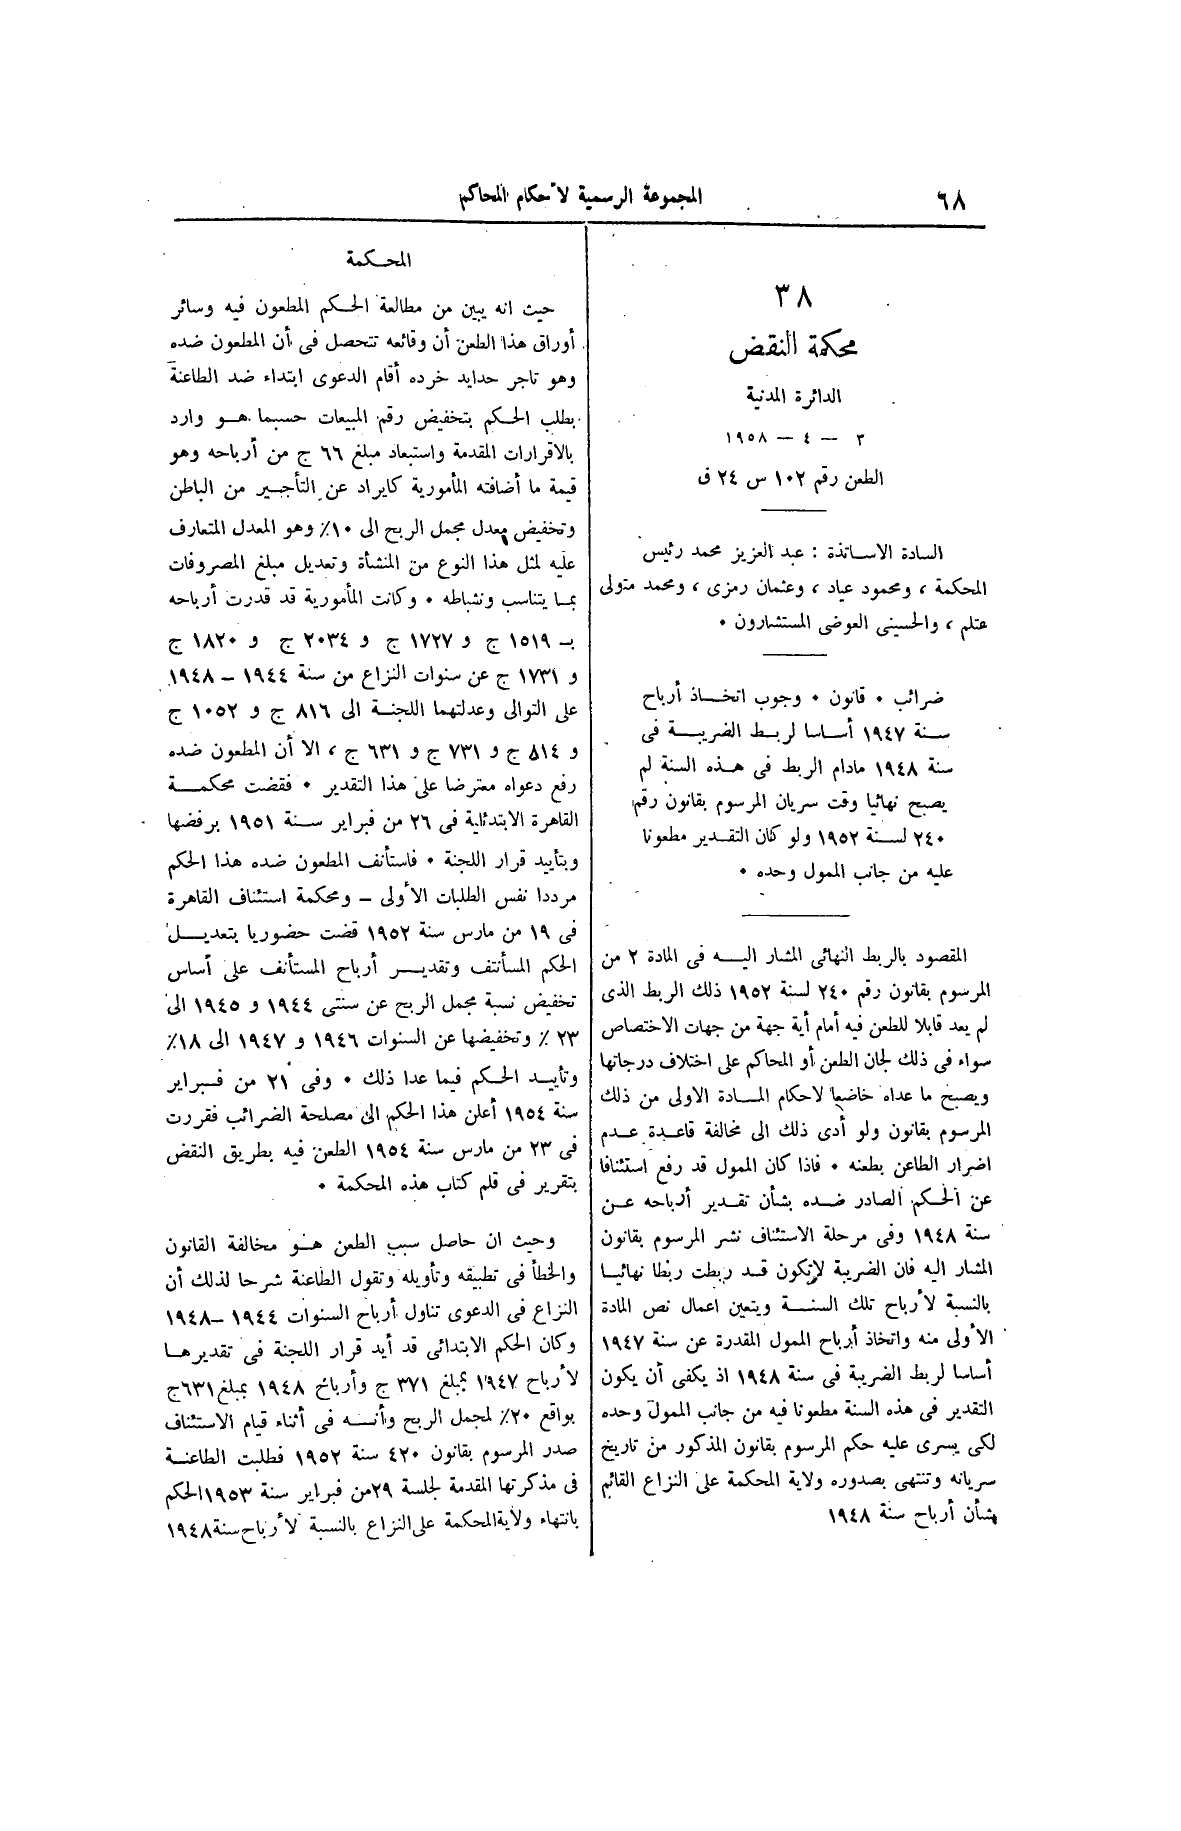 ٦٨
المجموعة الرسمية لأحكام المحاكم
٣٨
محكمة النقض
الدائرة المدنية
٣ – ٤ – ١٩٥٨
الطعن رقم ١٠٢ س ٢٤ ق
السادة الاساتذة : عبد العزيز محمد رئيس
المحكمة ، ومحمود عياد ، وعثمان رمزى ، ومحمد متولى
عتلم ، والحسينى العوضى المستشارون •
ضرائب • قانون • وجوب اتخاذ أرباح
سنة ١٩٤٧ أساسا لربط الضريبة فى
سنة ١٩٤٨ مادام الربط فى هذه السنة لم
يصبح نهائيا وقت سريان المرسوم بقانون رقم
٢٤٠ لسنة ١٩٥٢ ولو كان التقدير مطعونا
عليه من جانب الممول وحده •
المقصود بالربط النهائى المشار اليه فى المادة ٢ من
المرسوم بقانون رقم ٢٤٠ لسنة ١٩٥٢ ذلك الربط الذى
لم يعد قابلا للطعن فيه أمام أية جهة من جهات الاختصاص
سواء فى ذلك لجان الطعن أو المحاكم على اختلاف درجاتها
ويصبح ما عداه خاضعا لاحكام المادة الاولى من ذلك
المرسوم بقانون ولو أدى ذلك الى مخالفة قاعدة عدم
اضرار الطاعن بطعنه • فاذا كان الممول قد رفع استئنافا
عن الحكم الصادر ضده بشأن تقدير أرباحه عن
سنة ١٩٤٨ وفى مرحلة الاستئناف نشر المرسوم بقانون
المشار اليه فان الضريبة لاتكون قد ربطت ربطا نهائيا
بالنسبة لأرباح تلك السنة ويتعين اعمال نص المادة
الأولى منه واتخاذ أرباح الممول المقدرة عن سنة ١٩٤٧
أساسا لربط الضريبة فى سنة ١٩٤٨ اذ يكفى أن يكون
التقدير فى هذه السنة مطعونا فيه من جانب الممول وحده
لكى يسرى عليه حكم المرسوم بقانون المذكور من تاريخ
سريانه وتنتهى بصدوره ولاية المحكمة على النزاع القائم
بشأن أرباح سنة ١٩٤٨
المحكمة
حيث انه يبين من مطالعة الحكم المطعون فيه وسائر
أوراق هذا الطعن أن وقائعه تتحصل فى أن المطعون ضده
وهو تاجر حدايد خرده أقام الدعوى ابتداء ضد الطاعنة
بطلب الحكم بتخفيض رقم المبيعات حسبما هو وارد
بالاقرارات المقدمة واستبعاد مبلغ ٦٦ ج من أرباحه وهو
قيمة ما أضافته المأمورية كايراد عن التأجير من الباطن
وتخفيض معدل مجمل الربح الى ١٠٪ وهو المعدل المتعارف
عليه لمثل هذا النوع من المنشأة وتعديل مبلغ المصروفات
بما يتناسب ونشاطه • وكانت المأمورية قد قدرت أرباحه
بـ ١٥١٩ ج و ١٧٢٧ ج و ٢٠٣٤ ج و ١٨٢٠ ج
و ١٧٣١ ج عن سنوات النزاع من سنة ١٩٤٤ – ١٩٤٨
على التوالى وعدلتهما اللجنة الى ٨١٦ ج و ١٠٥٢ ج
و ٨١٤ ج و ٧٣١ ج و ٦٣١ ج ، الا أن المطعون ضده
رفع دعواه معترضا على هذا التقدير • فقضت محكمة
القاهرة الابتدائية فى ٢٦ من فبراير سنة ١٩٥١ برفضها
وبتأييد قرار اللجنة • فاستأنف المطعون ضده هذا الحكم
مرددا نفس الطلبات الأولى – ومحكمة استئناف القاهرة
فى ١٩ من مارس سنة ١٩٥٢ قضت حضوريا بتعديل
الحكم المستأنف وتقدير أرباح المستأنف على أساس
تخفيض نسبة مجمل الربح عن سنتى ١٩٤٤ و ١٩٤٥ الى
٢٣ ٪ وتخفيضها عن السنوات ١٩٤٦ و ١٩٤٧ الى ١٨٪
وتأييد الحكم فيما عدا ذلك • وفى ٢١ من فبراير
سنة ١٩٥٤ أعلن هذا الحكم الى مصلحة الضرائب فقررت
فى ٢٣ من مارس سنة ١٩٥٤ الطعن فيه بطريق النقض
بتقرير فى قلم كتاب هذه المحكمة •
وحيث ان حاصل سبب الطعن هو مخالفة القانون
والخطأ فى تطبيقه وتأويله وتقول الطاعنة شرحا لذلك أن
النزاع فى الدعوى تناول أرباح السنوات ١٩٤٤ –١٩٤٨
وكان الحكم الابتدائى قد أيد قرار اللجنة فى تقديرها
لأرباح ١٩٤٧ بمبلغ ٣٧١ ج وأرباح ١٩٤٨ بمبلغ ٦٣١ج
بواقع ٢٠٪ لمجمل الربح وأنه فى أثناء قيام الاستئناف
صدر المرسوم بقانون ٤٢٠ سنة ١٩٥٢ فطلبت الطاعنة
فى مذكرتها المقدمة لجلسة ٢٩من فبراير سنة ١٩٥٣الحكم
بانتهاء ولاية المحكمة على النزاع بالنسبة لأرباح سنة ١٩٤٨